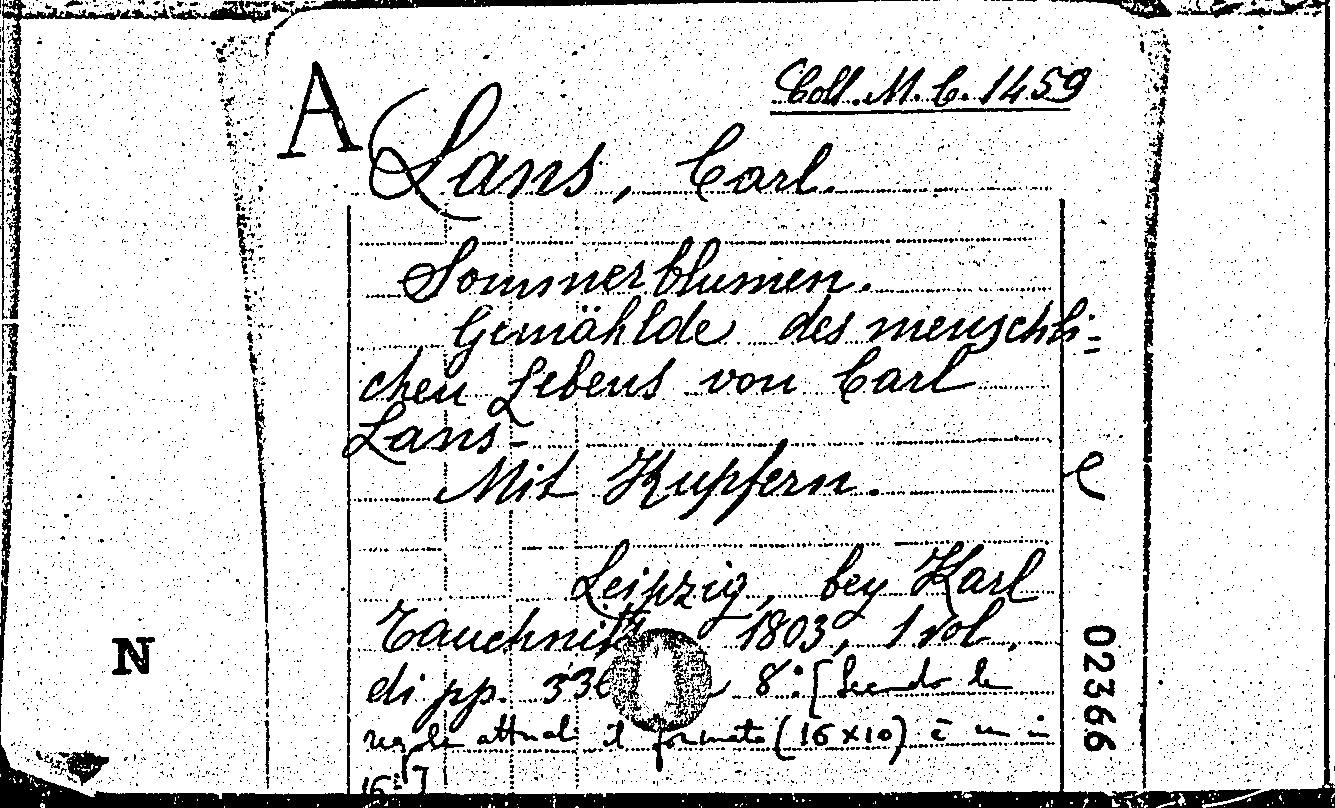 A
Coll. M. C. 1459
Lans, Carl.
Sommerblumen.
Gemählde des menschli=
chen Lebens von Carl
Lans-
Mit Kupfern.
e
Leipzig, bey Karl
Tauchnitz, 1803, 1 vol.
di pp. 336 8º: [Secondo le
regole attuali il formato (16x10) è un in
16º]
N
02366